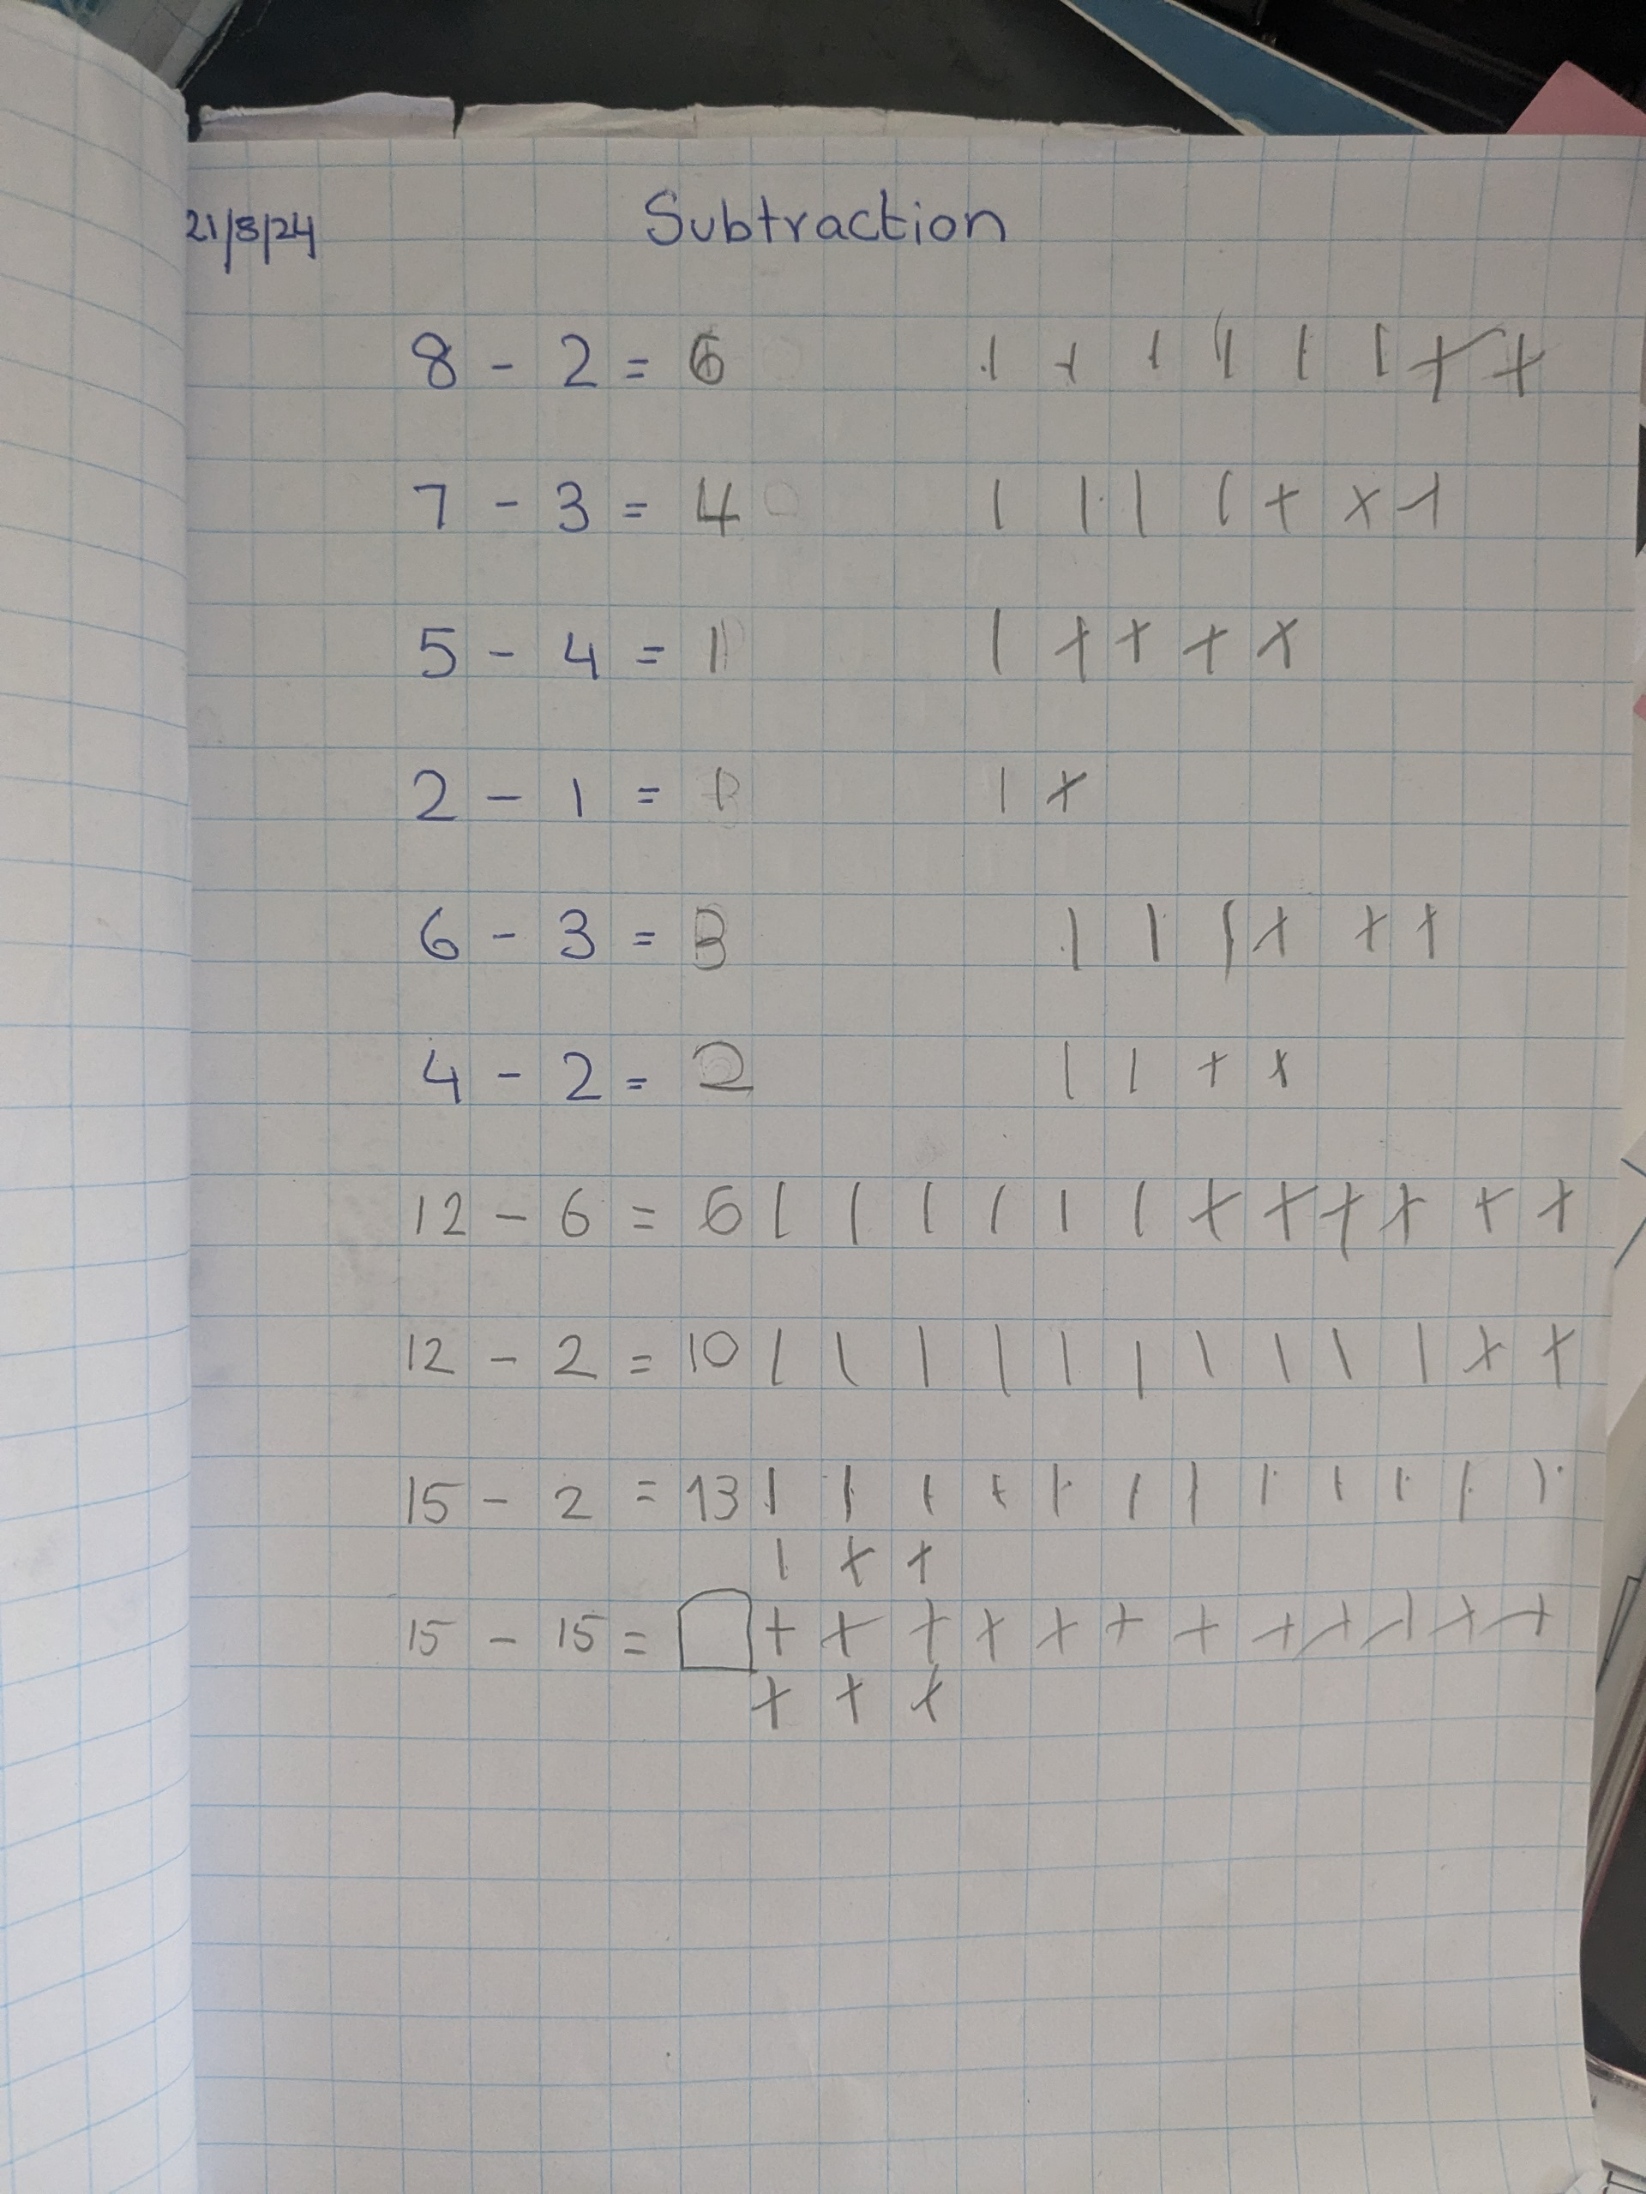 21/8/24 Subtraction
8 - 2 = 6 | | | | | | + +
7 - 3 = 4 | | | | + + +
5 - 4 = 1 | + + + +
2 - 1 = 1 | +
6 - 3 = 3 | | | + + +
4 - 2 = 2 | | + +
12 - 6 = 6 | | | | | | + + + + + +
12 - 2 = 10 | | | | | | | | | | + +
15 - 2 = 13 | | | | | | | | | | | |
| + +
15 - 15 = □ + + + + + + + + + + + +
+ + +